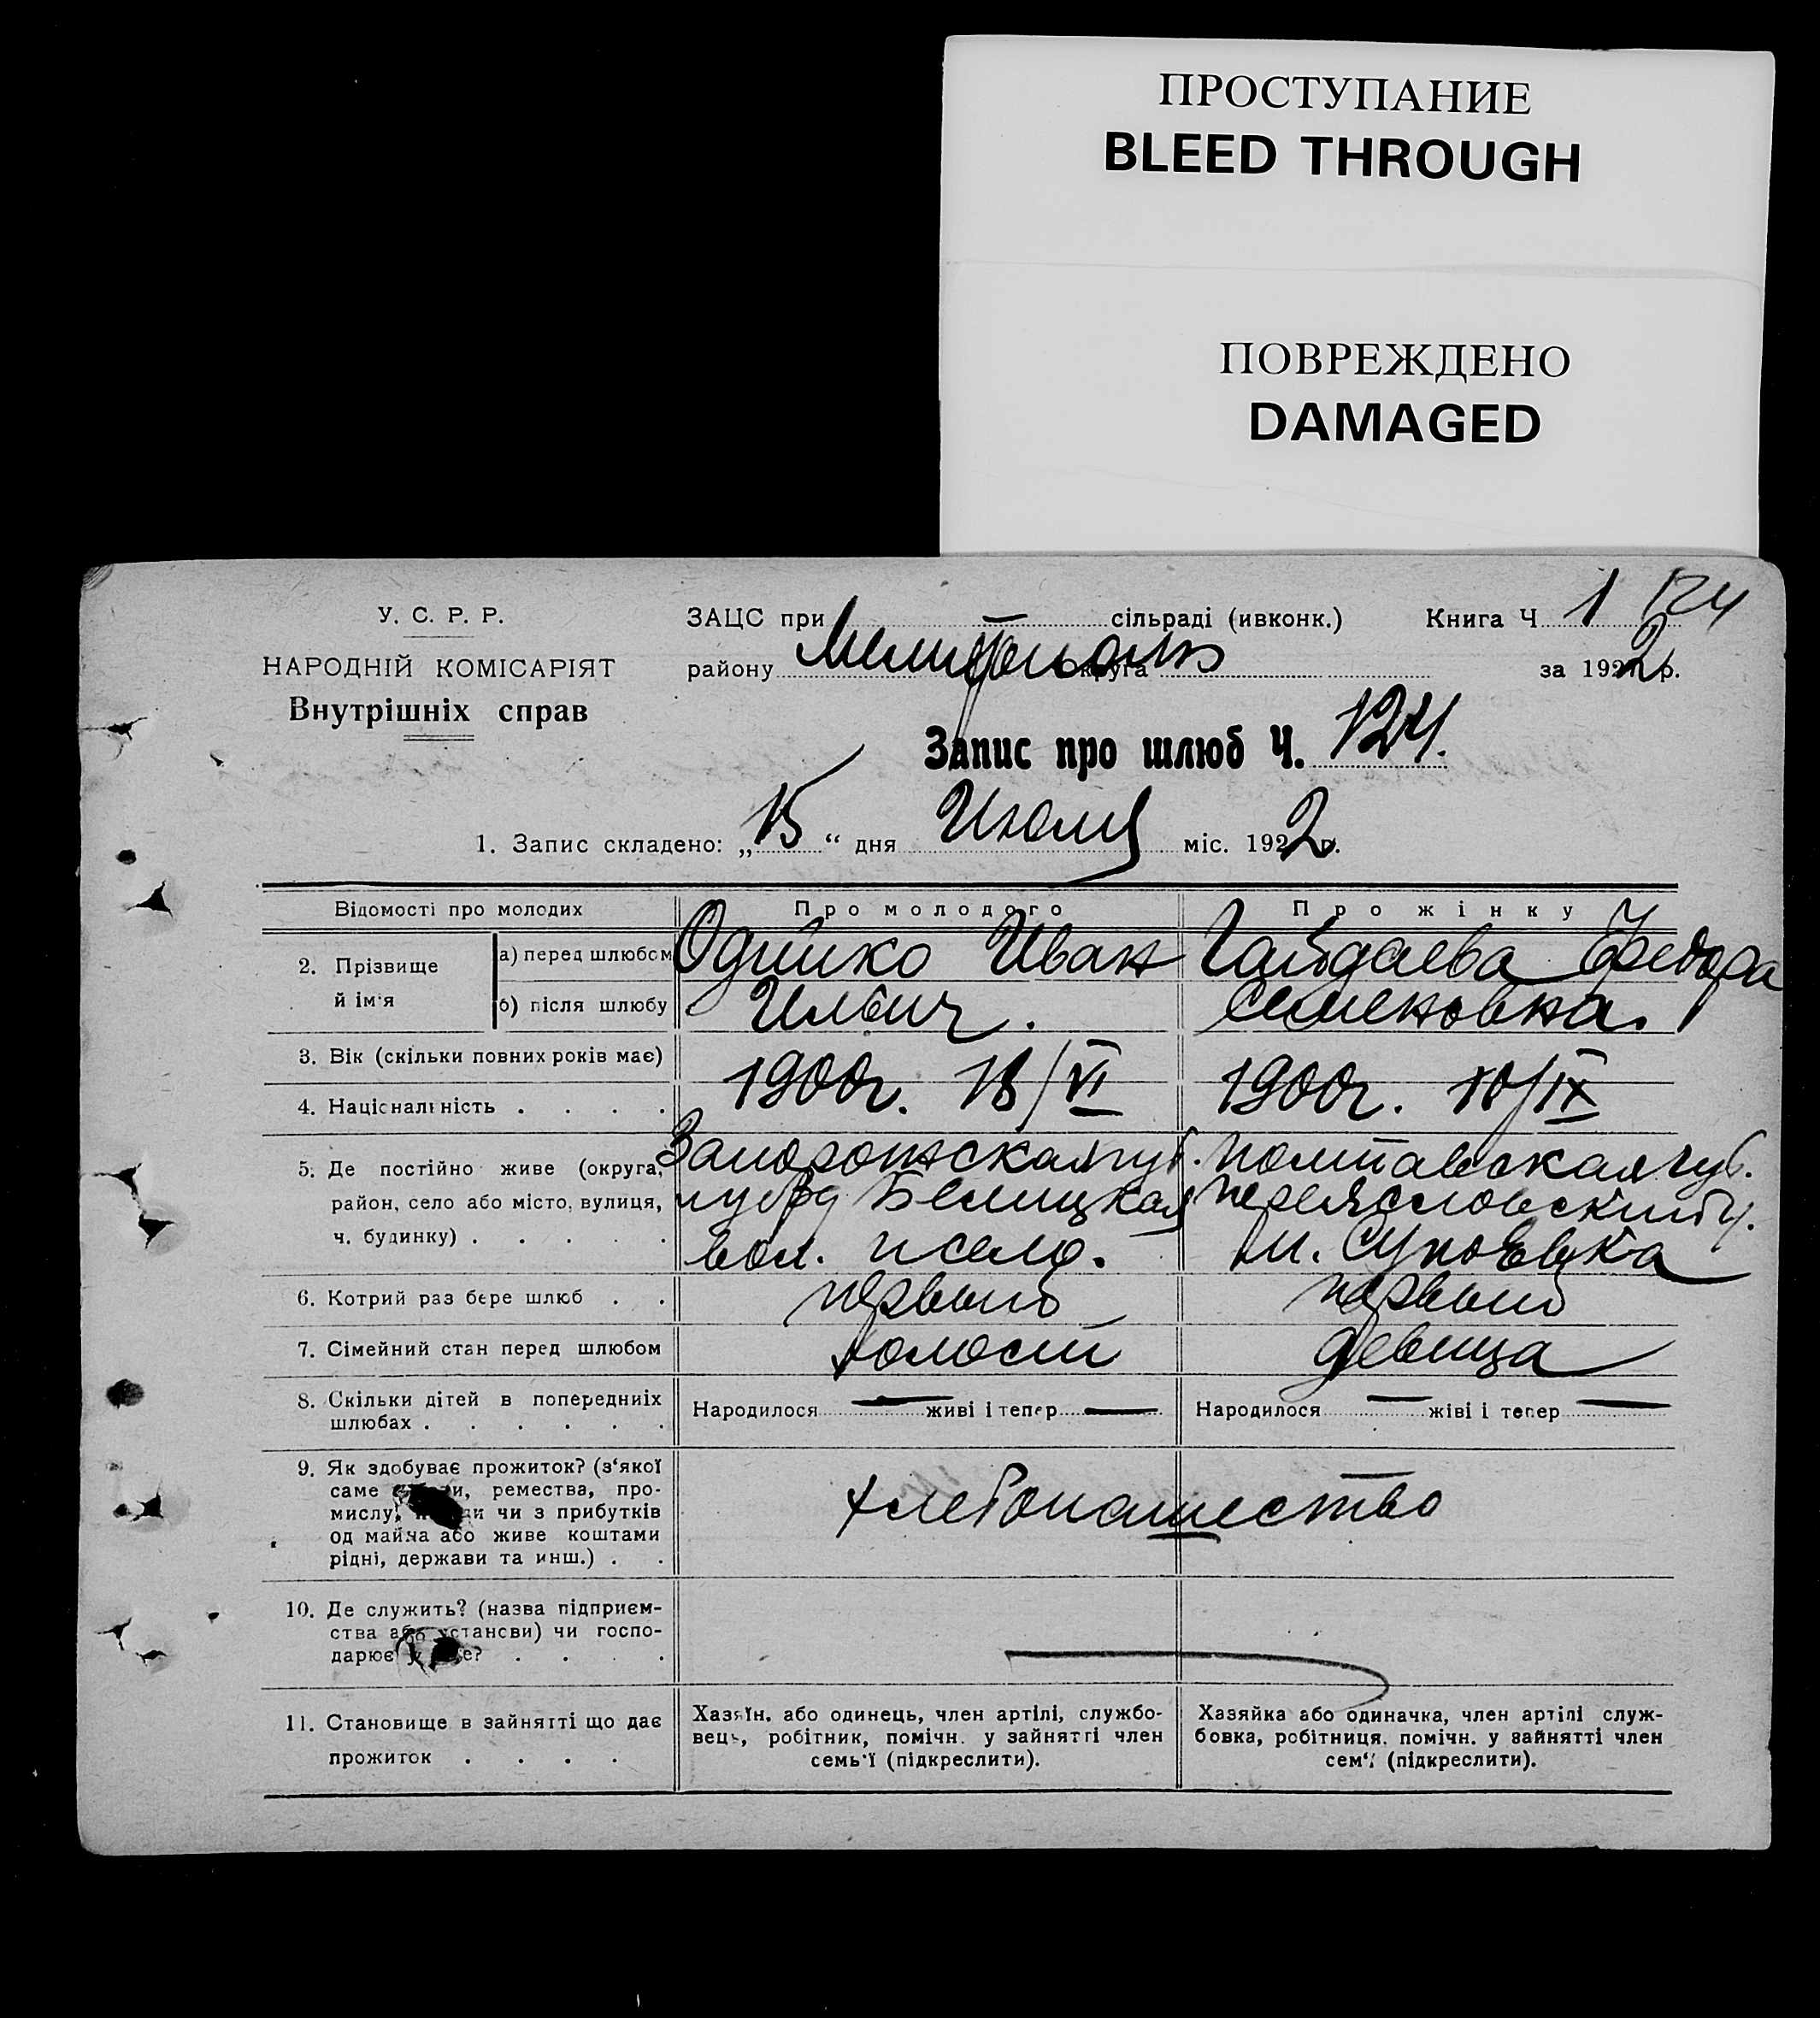 ПРОСТУПАНИЕ
BLEED THROUGH
ПОВРЕЖДЕНО
DAMAGED
У. С. Р. Р.
НАРОДНІЙ КОМІСАРІЯТ
Внутрішніх справ
ЗАЦС при сільраді (ивконк.)
Книга Ч 1 124
району Мелитополь округа за 1922 р.
Запис про шлюб Ч. 124.
1. Запис складено: „15“ дня Июля міс. 1922 р.
Відомості про молодих
Про молодого
Про жінку
2. Прізвище й ім'я
а) перед шлюбом
б) після шлюбу
Одинко Иван
Ильич.
Гайдаева Федора
Семеновна.
3. Вік (скільки повних років має)
4. Національність . . . .
1900г. 18/VI
1900г. 10/IX
5. Де постійно живе (округа,
район, село або місто, вулиця,
ч. будинку) . . . . .
Запорожская губ.
Белицкая
вол. и село.
Полтавская губ.
Переясловский у.
м.
6. Котрий раз бере шлюб . .
первый
первый
7. Сімейний стан перед шлюбом
холост
девица
8. Скільки дітей в попередниіх
шлюбах . . . . . .
Народилося — живі і тепер —
Народилося — жіві і тепер —
9. Як здобуває прожиток? (з'якої
саме ремества, про-
мислу, чи з прибутків
од майна або живе коштами
рідні, держави та инш.) . .
хлебопашество
10. Де служить? (назва підприєм-
ства або установи) чи госпо-
дарює у
11. Становище в зайнятті що дає
прожиток . . . .
Хазяїн, або одинець, член артілі, службо-
вець, робітник, помічн. у зайнятті член
семь'ї (підкреслити).
Хазяйка або одиначка, член артілі служ-
бовка, робітниця, помічн. у зайнятті член
сем'ї (підкреслити).